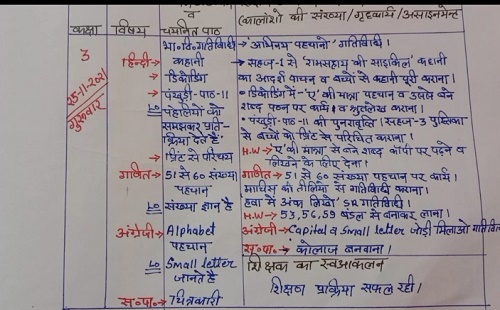 व
चयनित पाठ
(कालांशों की संख्या/गृहकार्य/असाइनमेंट
कक्षा
विषय
3
25-11-2021
गुरुवार
हिन्दी→
गणित→
अंग्रेजी→
स॰पा॰→
भा॰वि॰गतिविधी
कहानी
→ डिकोडिंग
→ पंखुड़ी-पाठ-11
LO पहेलियों को
समझकर प्रति-
क्रिया देते हैं
→ प्रिंट से परिचय
51 से 60 संख्या
पहचान
LO संख्या ज्ञान है
Alphabet
पहचान
LO Small letter
जानते है
चित्रकारी
→ 'अभिनय पहचानो' गतिविधी।
→ सहज-1 से 'रामसहाय की साइकिल' कहानी
का आदर्श वाचन व बच्चों से कहानी पूरी कराना।
• डिकोडिंग में-'ए' की मात्रा पहचान व उससे बने
शब्द पठन पर कार्य। व श्रुतलेख कराना।
• पंखुड़ी-पाठ-11 की पुनरावृति। सहज-3 पुस्तिका
से बच्चों को प्रिंट से परिचित कराना।
H.W→ 'ए' की मात्रा से बने शब्द कॉपी पर पढ़ने व
लिखने के लिए देना।
गणित→ 51 से 60 संख्या पहचान पर कार्य।
माचिस की तीलियों से गतिविधी कराना।
हवा में अंक लिखो' SR गतिविधी।
H.W→ 53,56,59 बंडल से बनाकर लाना।
अंग्रेजी→ Capital व Small letter जोड़ी मिलाओ गतिविधी
स॰पा॰→ कोलाज बनवाना।
शिक्षक का स्वआकलन
शिक्षण प्रक्रिया सफल रही।